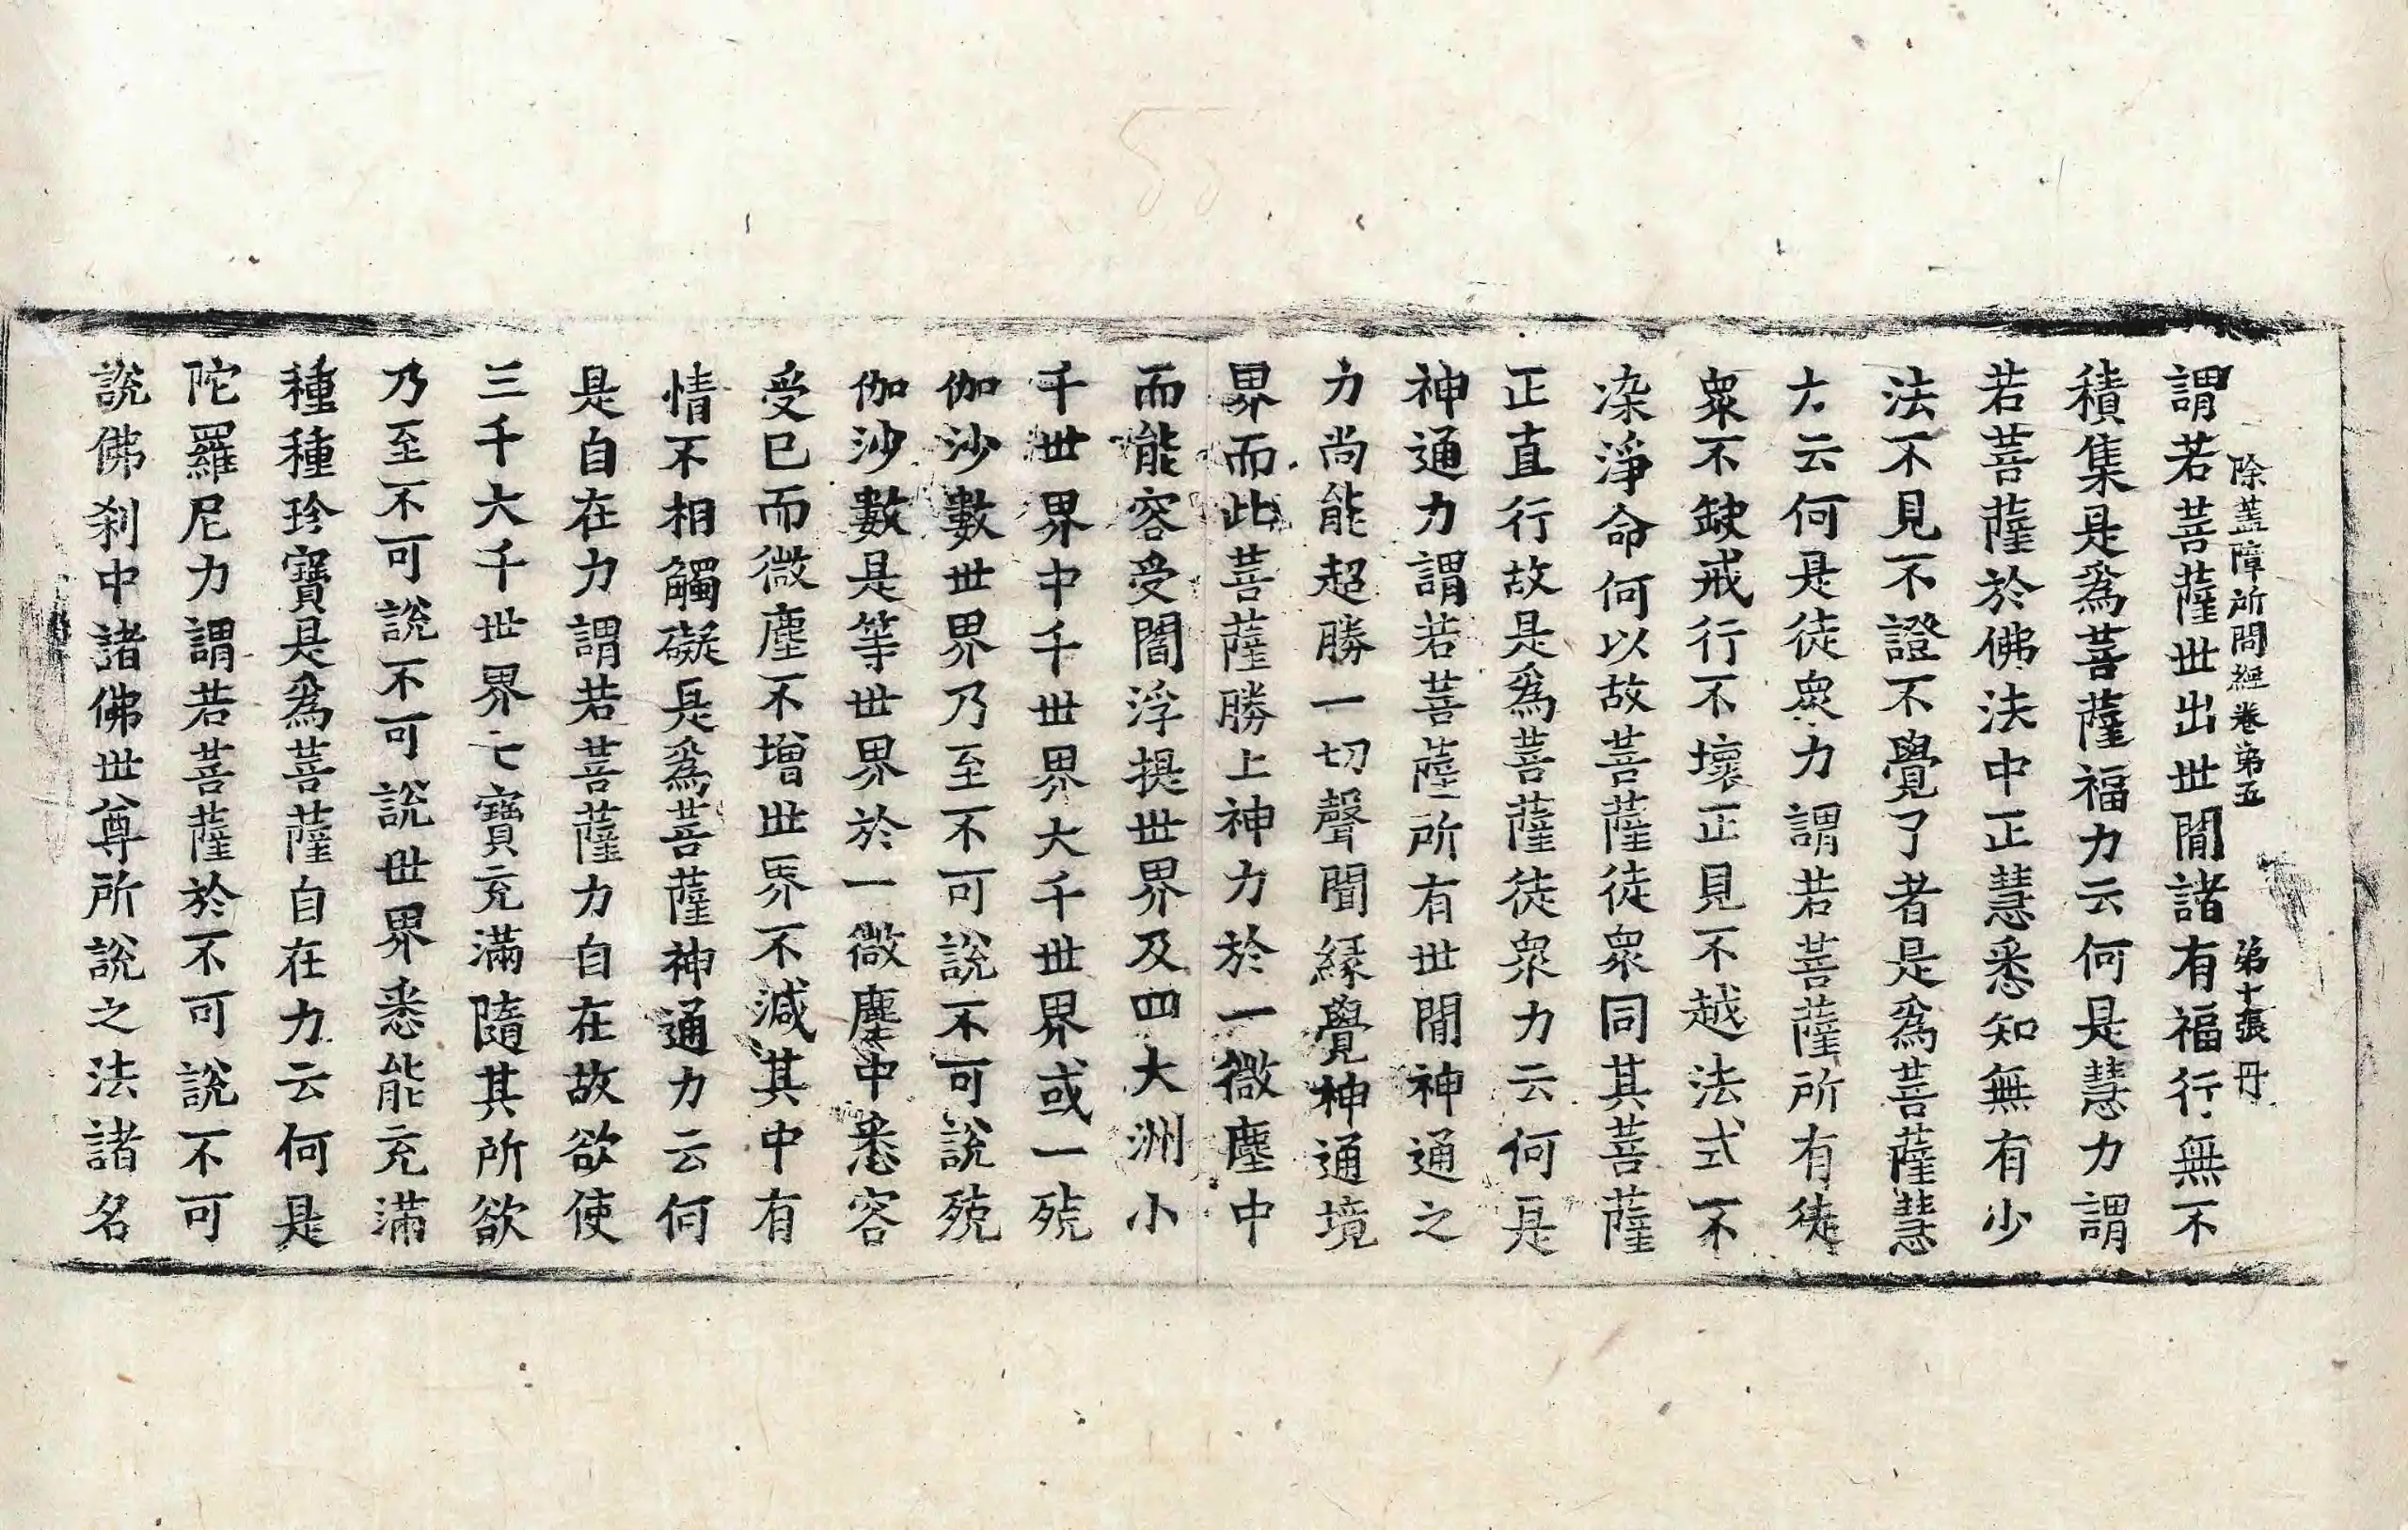 除蓋障所問經卷第五 第十張 丹
謂若菩薩世出世閒諸有福行無不
積集是爲菩薩福力云何是慧力謂
若菩薩於佛法中正慧悉知無有少
法不見不證不覺了者是爲菩薩慧
力云何是徒衆力謂若菩薩所有徒
衆不缺戒行不壞正見不越法式不
染淨命何以故菩薩徒衆同其菩薩
正直行故是爲菩薩徒衆力云何是
神通力謂若菩薩所有世閒神通之
力尚能超勝一切聲聞緣覺神通境
界而此菩薩勝上神力於一微塵中
而能容受閻浮提世界及四大洲小
千世界中千世界大千世界或一殑
伽沙數世界乃至不可說不可說殑
伽沙數是等世界於一微塵中悉容
受已而微塵不增世界不減其中有
情不相觸礙是爲菩薩神通力云何
是自在力謂若菩薩力自在故欲使
三千大千世界七寶充滿隨其所欲
乃至不可說不可說世界悉能充滿
種種珍寶是爲菩薩自在力云何是
陀羅尼力謂若菩薩於不可說不可
說佛刹中諸佛世尊所說之法諸名